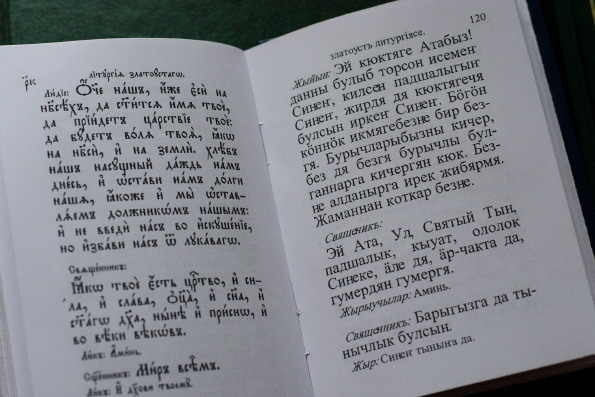 рк
літꙋргі́а златоꙋ́стагѡ.
Ли́діе: Ѻ҆́че на́шъ, и҆́же є҆сѝ на
нб҃сѣ́хъ, да ст҃и́тсѧ и҆́мѧ твоѐ,
да прїи́детъ ца́рствїе твоѐ:
да бꙋ́детъ во́лѧ твоѧ̀, ꙗ҆́кѡ
на нб҃сѝ, и҆ на землѝ. хлѣ́бъ
на́шъ насꙋ́щный да́ждь на́мъ
дне́сь, и҆ ѡ҆ста́ви на́мъ до́лги
на́шѧ, ꙗ҆́коже и҆ мы̀ ѡ҆став-
лѧ́емъ должникѡ́мъ на́шымъ:
и҆ не введѝ на́съ во и҆скꙋше́нїе,
но и҆зба́ви на́съ ѿ лꙋка́вагѡ.
Свѧще́нникъ:
Ꙗ҆́кѡ твоѐ є҆́сть црⷭ҇тво, и҆ си́-
ла, и҆ сла́ва, ѻ҆ц҃а̀, и҆ сн҃а, и҆
ст҃а́гѡ дх҃а, ны́нѣ и҆ при́снѡ, и҆
во вѣ́ки вѣкѡ́въ.
Ли́къ: А҆ми́нь.
Сщ҃е́нникъ: Ми́ръ всѣ̑мъ.
Ли́къ: И҆ дꙋ́хови твоемꙋ̀.
120
златоусть литургіясе.
Жыйын: Эй кюктяге Атабыз!
данны булыб торсон исемеҥ
Синеҥ, килсен падшалыгыҥ
Синеҥ, жирдя дя кюктягечя
булсын иркеҥ Синеҥ. Бӧгӧн
кӧннӧк икмягебезне бир без-
гя. Бурычларыбызны кичер,
без дя безгя бурычлы бул-
ганнарга кичергян кюк. Без-
не алданырга ирек жибярмя.
Жаманнан коткар безне.
Священикъ:
Эй Ата, Ул, Святый Тын,
падшалык, кыуат, ололок
Синеке, äле дя, äр-чакта да,
гумердян гумергя.
Жырыучылар: Аминь.
Священикъ: Барыгызга да ты-
нычлык булсын.
Жыр: Синеҥ тыныҥа да.